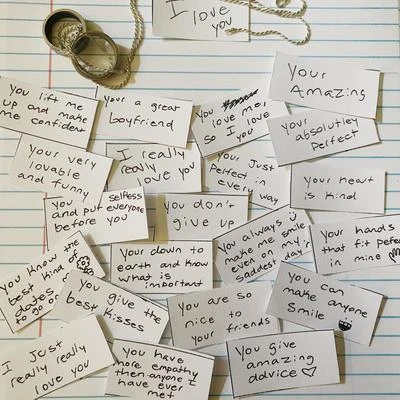 I love
you
Your
Amazing
You lift me
up and make
me confident
Your a great
boyfriend
You
love me,
so I love
you
Your
absolutley
Perfect
Your very
lovable
and funny
I really
really
love you
Your Just
Perfect in
every way
Your heart
is Kind
You selfless
and put everyone
before you
You don't
give up
You always
make me smile
even on my
saddest day's
Your hands
that fit pefect
in mine
You Know the
best kind of
dates
to go on
Your down to
earth and Know
what is
important
You give the
best Kisses
You are so
nice to
your friends
You can
make anyone
Smile
I Just
really really
love you
You have
more empathy
then anyone I
have ever
met
You give
amazing
advice